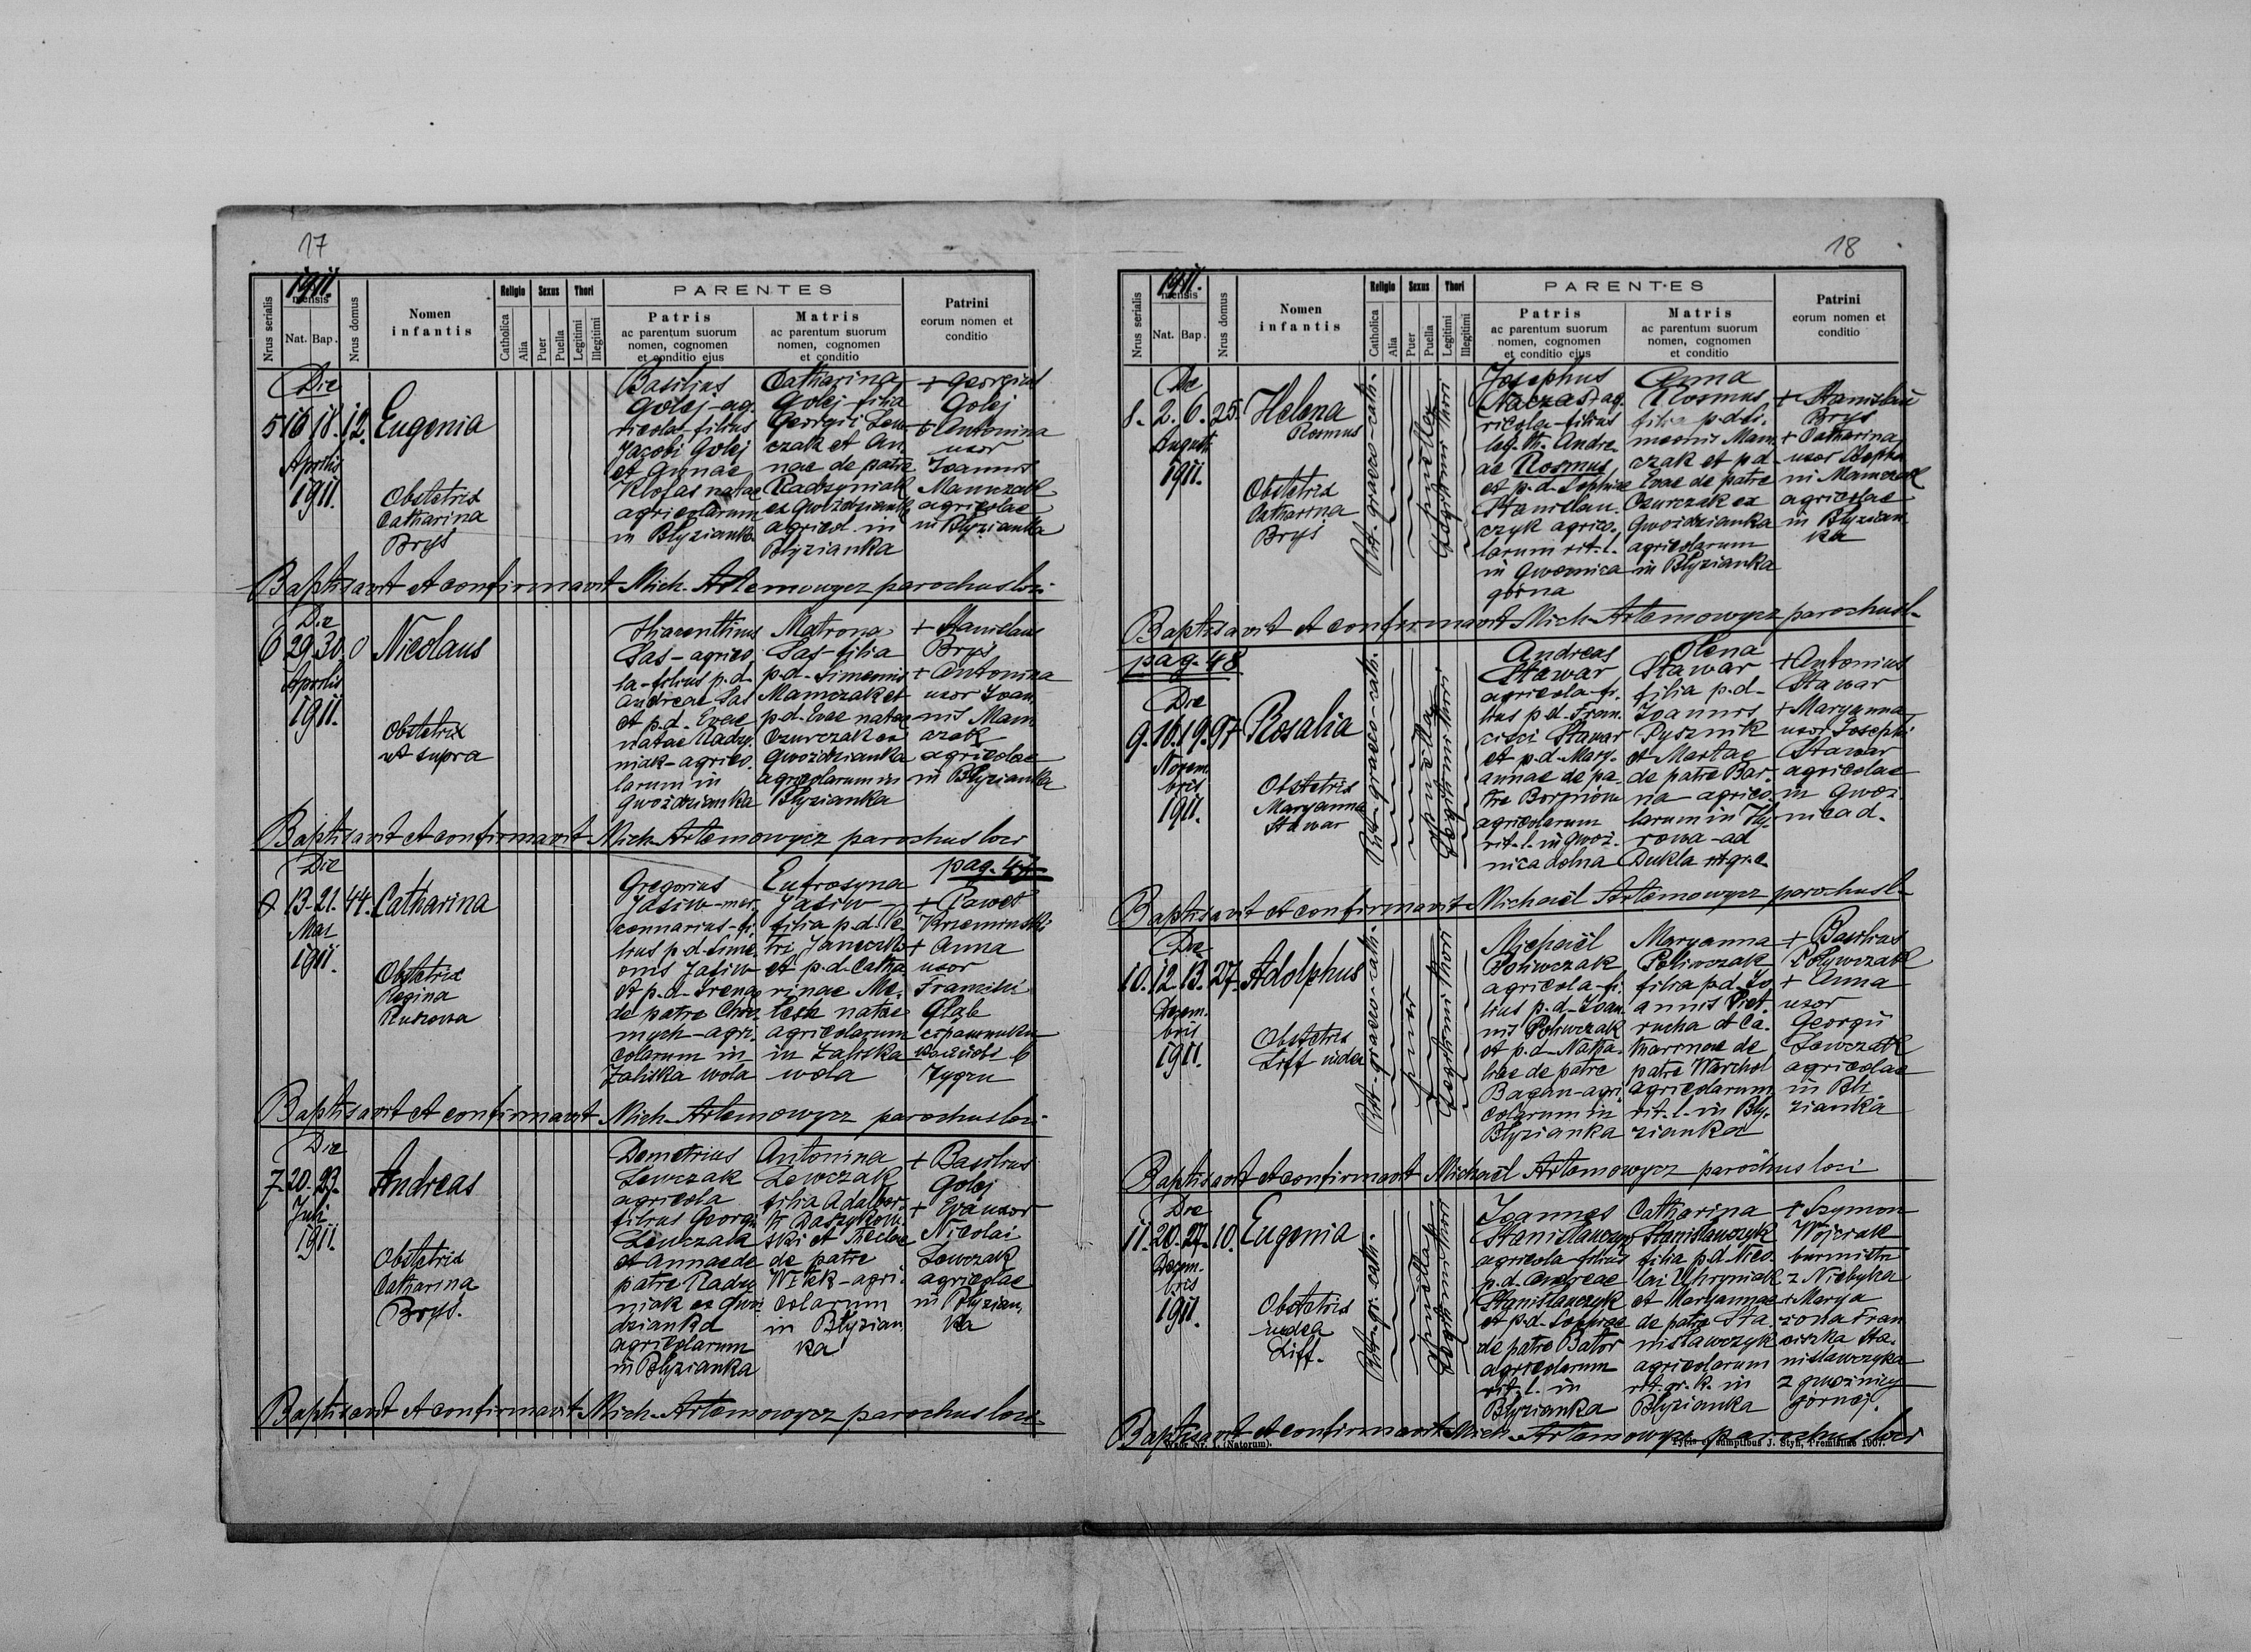 17
1911.
mensis
Nrus serialis
Nat.
Bap.
Nrus domus
Nomen
infantis
Religio
Sexus
Thori
Catholica
Alia
Puer
Puella
Legitimi
Illegitimi
PARENTES
Patris
ac parentum suorum
nomen, cognomen
et conditio ejus
Matris
ac parentum suorum
nomen, cognomen
et conditio
Patrini
eorum nomen et
conditio
Die
5 16 18. 12. Eugenia
Aprilis
1911.
Obstetrix
Catharina
Brys
Basilius
Golej - ag-
ricola - filius
Jacobi Golej
et Annae
Klofas natae
agricolarum
in Blyzianka
Catharina
Golej - filia
Georgii Lew-
czak et An-
nae de patre
Radzyniak
ex Gwoździanka
agricol. in
Blyzianka
+ Georgius
Golej
+ Antonina
uxor
Joannis
Mamczak
agricolae
in Blyzianka
Baptisavit et confirmavit Mich. Artemowycz parochus loci
Die
6 29. 30. 0 Nicolaus
Aprilis
1911.
Obstetrix
ut supra
Hiacynthus
Sas - agrico-
la - filius p.d.
Andreae Sas
et p.d. Evae
natae Radzy-
niak - agrico-
larum in
Gwoździanka
Matrona
Sas - filia
p.d. Simeonis
Mamczak et
p.d. Evae natae
Czurczak ex
Gwoździanka
agricolarum in
Blyzianka
+ Stanislaus
Brys
+ Antonina
uxor Joan-
nis Mam-
czak
agricolae
in Blyzianka
Baptisavit et confirmavit Mich. Artemowycz parochus loci
Die
13. 21. 44. Catharina
Mai
1911.
Obstetrix
Regina
Gregorius
Jasiw - mer-
cennarius - fi-
lius p.d. Sime-
onis Jasiw
et p.d. Irenae
de patre
mych - agri-
colarum in
Zaliska wola
Eufrosyna
Jasiw -
filia p.d. Pe-
tri Janeczko
et p.d. Catha-
rinae Me-
natae
agricolarum
in Zaliska
wola
pag. 47
+ Paweł
Krzemiński
+ Anna
uxor
Baptisavit et confirmavit Mich. Artemowycz parochus loci
Die
7. 20. 23. Andreas
Juli
1911.
Obstetrix
Catharina
Brys.
Demetrius
Lewczak
agricola
filius Georgi
Lewczak
et Annae de
patre Radzy-
niak ex Gwo-
dzianka
agricolarum
in Blyzianka
Antonina
Lewczak
filia Adalber-
ti Daszykow-
ski et Theclae
de patre
Witek - agri-
colarum
in Blyzian-
ka
+ Basilius
Golej
+ Eva uxor
Nicolai
Lewczak
agricolae
in Blyzian-
ka
Baptisavit et confirmavit Mich. Artemowycz parochus loci
18
1911.
mensis
Nrus serialis
Nat.
Bap.
Nrus domus
Nomen
infantis
Religio
Sexus
Thori
Catholica
Alia
Puer
Puella
Legitimi
Illegitimi
PARENTES
Patris
ac parentum suorum
nomen, cognomen
et conditio ejus
Matris
ac parentum suorum
nomen, cognomen
et conditio
Patrini
eorum nomen et
conditio
Die
8. 2. 6. 25. Helena
Rosmus
Augusti
1911.
Obstetrix
Catharina
Brys
Rit. graeco-cath.
puella
Legitimi thori
Josephus
ag-
ricola - filius
leg. th. Andre-
ae Rosmus,
et p.d. Sophiae
Stanislaw-
czyk agrico-
larum rit. l.
in Gwoznica
górna
Anna
Rosmus
filia p.d. Si-
meonis Mam-
czak et p.d.
Evae de patre
Czurczak ex
Gwoździanka
agricolarum
in Blyzianka
+ Stanislaus
Brys
+ Catharina
uxor Steph-
ni Mamczak
agricolae
in Blyzian-
ka
Baptisavit et confirmavit Mich. Artemowycz parochus l.
pag. 48
Die
9. 16. 19. 97 Rosalia
Novem-
bris
1911.
Obstetrix
Maryanna
Stawar
Rit. graeco-cath.
puella
Legitimi thori
Andreas
Stawar
agricola - fi-
lius p.d. Fran-
cisci Stawar
et p.d. Mary-
annae de pa-
tre
agricolarum
rit. l. in Gwoź-
nica dolna
Olena
Stawar
filia p.d.
Joannis
Pysznik
et Martae
de patre Bar-
na - agrico-
larum in Hy-
rowa - ad
Dukla rit. gr. c.
+ Antonius
Stawar
+ Maryanna
uxor Josephi
Stawar
agricolae
in Gwoź-
nica d.
Baptisavit et confirmavit Michaël Artemowycz parochus l.
Die
10. 12. 13. 27. Adolphus
Decem-
bris
1911.
Obstetrix
Liff iudea
Rit. graeco-cath.
puer
Legitimi thori
Michaël
Poliwczak
agricola - fi-
lius p.d. Joan-
nis Poliwczak
et p.d. Natha-
liae de patre
Bagan - agri-
colarum in
Blyzianka
Maryanna
Poliwczak
filia p.d. Jo-
annis Piet-
rucha et Ca-
tharinae de
patre Warchol
agricolarum
rit. l. in Bly-
zianka
+ Basilius
Polywczak
+ Anna
uxor
Georgii
Lewczak
agricolae
in Bly-
zianka
Baptisavit et confirmavit Michaël Artemowycz parochus loci
Die
11. 20. 27. 10. Eugenia
Decem-
bris
1911.
Obstetrix
iudea
Liff.
Rit. gr. cath.
puella
Legitimi thori
Joannes
Stanislawczyk
agricola - filius
p.d. Andreae
Stanislawczyk
et p.d. Sophiae
de patre Bator
agricolarum
rit. l. in
Blyzianka
Catharina
Stanislawczyk
filia p.d. Nico-
lai Uhryniak
et Maryannae
de patre Sta-
nislawczyk
agricolarum
rit. gr. k. in
Blyzianka
+ Szymon
Wojczak
burmistrz
z Niebylca
+ Marya
żona Fran-
ciszka Sta-
nislawczyka
z Gwoźnicy
górnej.
Baptisavit et confirmavit Mich. Artemowycz parochus loci
Typis et sumptibus J. Styfi, Premisliae 1907.